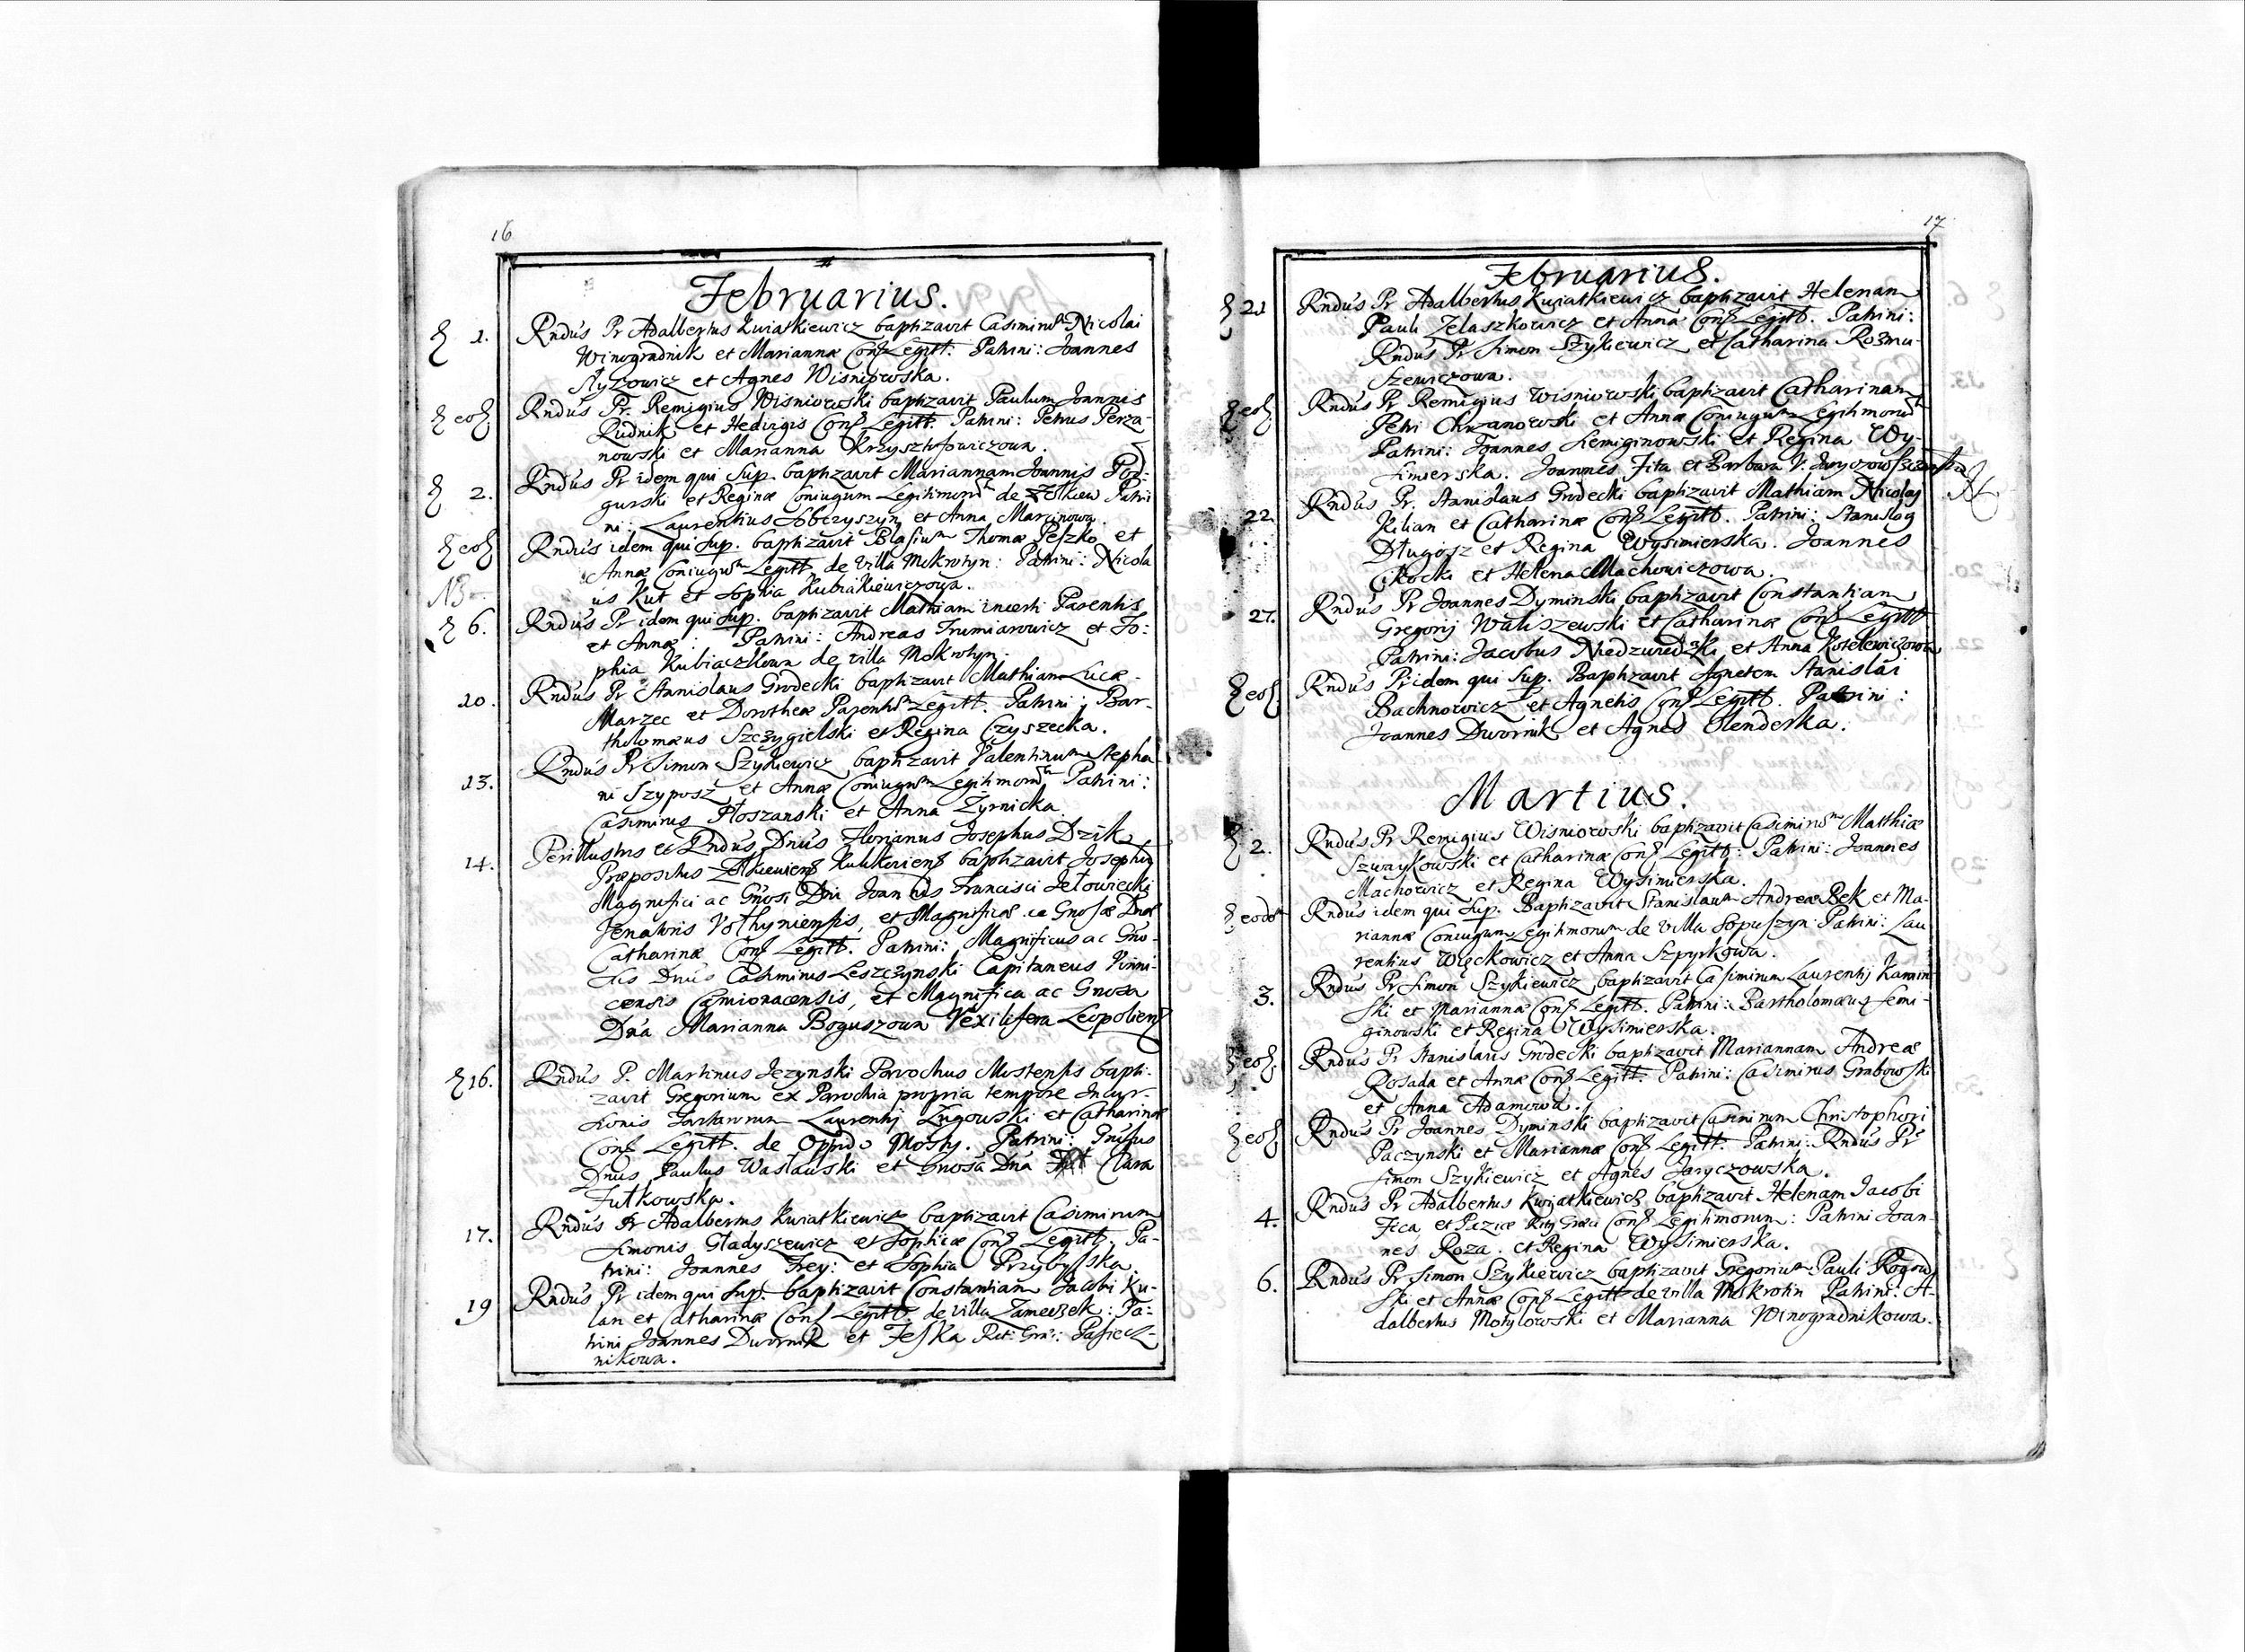 16
Februarius.
1. Rndus Pr Adalbertus Kwiatkiewicz baptizavit Casimirum Nicolai
Winogradnik et Mariannæ Conj Legitt: Patrini: Joannes
et Agnes Wisniowska.
eod Rndus Pr. Remigius Wisniowski baptizavit Paulum Joannis
Rudnik et Hedvigis Conj Legitt. Patrini: Petrus Perza-
nowski et Marianna Krzysztofowiczowa.
2. Rndus Pr idem qui Sup. baptizavit Mariannam Joannis Pod-
gurski et Reginæ Coniugum Legitimorum de Zolkiew Patri
ni: Laurentius Sobczyszyn et Anna Marcinowa.
eod Rndus idem qui Sup. baptizavit Blasium Thomæ Peszko et
Annæ Coniugum Legitt. de villa Mokrotyn: Patrini: Nicola
NB us Kut et Sophia Kubiakiewiczowa.
6. Rndus Pr idem qui Sup. baptizavit Mathiam incerti Parentis
et Annæ: Patrini: Andreas Trumiarowicz et So:
phia Kubiaczkowa de villa Mokrotyn.
10. Rndus Pr Stanislaus Grodecki baptizavit Mathiam Lucæ
Marzec et Dorotheæ Parentum Legitt. Patrini: Bar-
tholomæus Szczygielski et Regina Czyszecka.
13. Rndus Pr Simon Szykiewicz baptizavit Valentinum Stepha
ni Szyposz et Annæ Coniugum Legitimorum Patrini:
Casimirus Płoszanski et Anna Zyrnicka.
14. Perillustris et Rndus Dnus Florianus Josephus Dzik
Præpositus Zolkieviens Kulikoviens baptizavit Josephum
Magnifici ac Gnosi Dni Joannis Francisci Jełowiecki
Venatoris Vołhyniensis, et Magnificæ ac Gnosæ Dnæ
Catharinæ Conj Legitt. Patrini: Magnificus ac Gno-
sus Dnus Casimirus Leszczynski Capitaneus Vinni-
censis Camionacensis, et Magnifica ac Gnosa
Dna Marianna Boguszowa Vexilifera Leopoliens
16. Rndus P. Martinus Jezynski Parochus Mostensis bapti-
zavit Gregorium ex Parochia propria tempore Incur-
sionis Tartarorum Laurentij Zugowski et Catharinæ
Conj Legitt. de Oppido Mosty. Patrini: Gnosus
Dnus Paulus Waslawski et Gnosa Dna Clara
Jutkowska.
17. Rndus Pr Adalbertus Kwiatkiewicz baptizavit Casimirum
Simonis Gładyszewicz et Sophiæ Conj Legitt. Pa-
trini: Joannes Frey: et Sophia Przybylska.
19 Rndus Pr idem qui Sup. baptizavit Constantiam Jacobi Ku-
lan et Catharinæ Conj Legitt. de villa Zameczek: Pa:
trini Joannes Dwornik et Feska Rit: Græ: Pasiecz-
nikowa.
17
Februarius.
21 Rndus Pr Adalbertus Kwiatkiewicz baptizavit Helenam
Pauli Zelaszkowicz et Annæ Conj Legitt. Patrini:
Rndus Pr Simon Szykiewicz et Catharina Rozmu-
szewiczowa.
eod Rndus Pr Remigius Wisniowski baptizavit Catharinam
Petri Chrzanowski et Annæ Coniugum Legitimorum
Patrini: Joannes Semiginowski et Regina Wy-
simierska. Joannes Fita et Barbara V.
22 Rndus Pr. Stanislaus Grodecki baptizavit Mathiam Nicolaj
Kilian et Catharinæ Conj Legitt. Patrini: Stanislaus
Długosz et Regina Wysimierska. Joannes
Cikocki et Helena Machowiczowa.
27. Rndus Pr Joannes Dyminski baptizavit Constantiam
Gregorij Waliszewski et Catharinæ Conj Legitt
Patrini: Jacobus Niedzwiedzki et Anna Kotelewiczowa
eod Rndus Pr idem qui Sup. Baptizavit Agnetem Stanislai
Bachnowicz et Agnetis Conj Legitt. Patrini:
Joannes Dwornik et Agnes Olenderka.
Martius.
2. Rndus Pr Remigius Wisniowski baptizavit Casimirum Matthiæ
Szwaykowski et Catharinæ Conj Legitt: Patrini: Joannes
Machowicz et Regina Wysimierska.
eodem Rndus idem qui Sup. Baptizavit Stanislaum Andreæ Bek et Ma-
riannæ Coniugum Legitimorum de villa Sopuszyn Patrini: Lau
rentius Węckowicz et Anna Szpyrkowa.
3. Rndus Pr Simon Szykiewicz baptizavit Casimirum Laurentij Kamin-
ski et Mariannæ Conj Legitt. Patrini: Bartholomæus Semi-
ginowski et Regina Wysimierska.
eod Rndus Pr Stanislaus Grodecki baptizavit Mariannam Andreæ
Rosada et Annæ Conj Legitt. Patrini: Casimirus Grabowski
et Anna Adamowa.
eod Rndus Pr Joannes Dyminski baptizavit Casimirum Christophori
Paczynski et Mariannæ Conj Legitt: Patrini: Rndus Pr
Simon Szykiewicz et Agnes Jaryczowska.
4. Rndus Pr Adalbertus Kwiatkiewicz baptizavit Helenam Jacobi
Fica et Paziæ Rity Græci Conj Legitimorum: Patrini Joan-
nes Roza. et Regina Wysimierska.
6. Rndus Pr Simon Szykiewicz baptizavit Gregorium Pauli Rogow
ski et Annæ Conj Legitt de villa Mokrotin Patrini: A-
dalbertus Motylowski et Marianna Winogradnikowa.